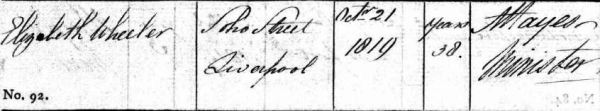 Elizabeth Wheeler
No. 92.
Soho Street
Liverpool
Octr 21
1819
years
38.
A Hayes
Minister